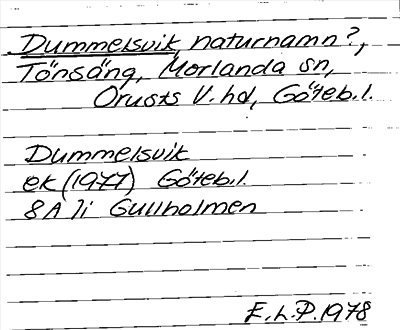 Dummelsvik, naturnamn?,
Tönsäng, Morlanda sn,
Orusts V. hd, Göteb. l.
Dummelsvik
ek (1977) Göteb. l.
8A 7i Gullholmen
E. L. P. 1978